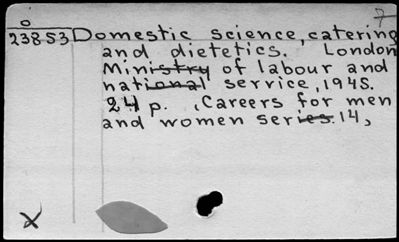 7
o
23853 Domestic science, catering
and dietetics. London
Ministry of labour and
national service, 1945.
24 p. (Careers for men
and women series. 14,
X